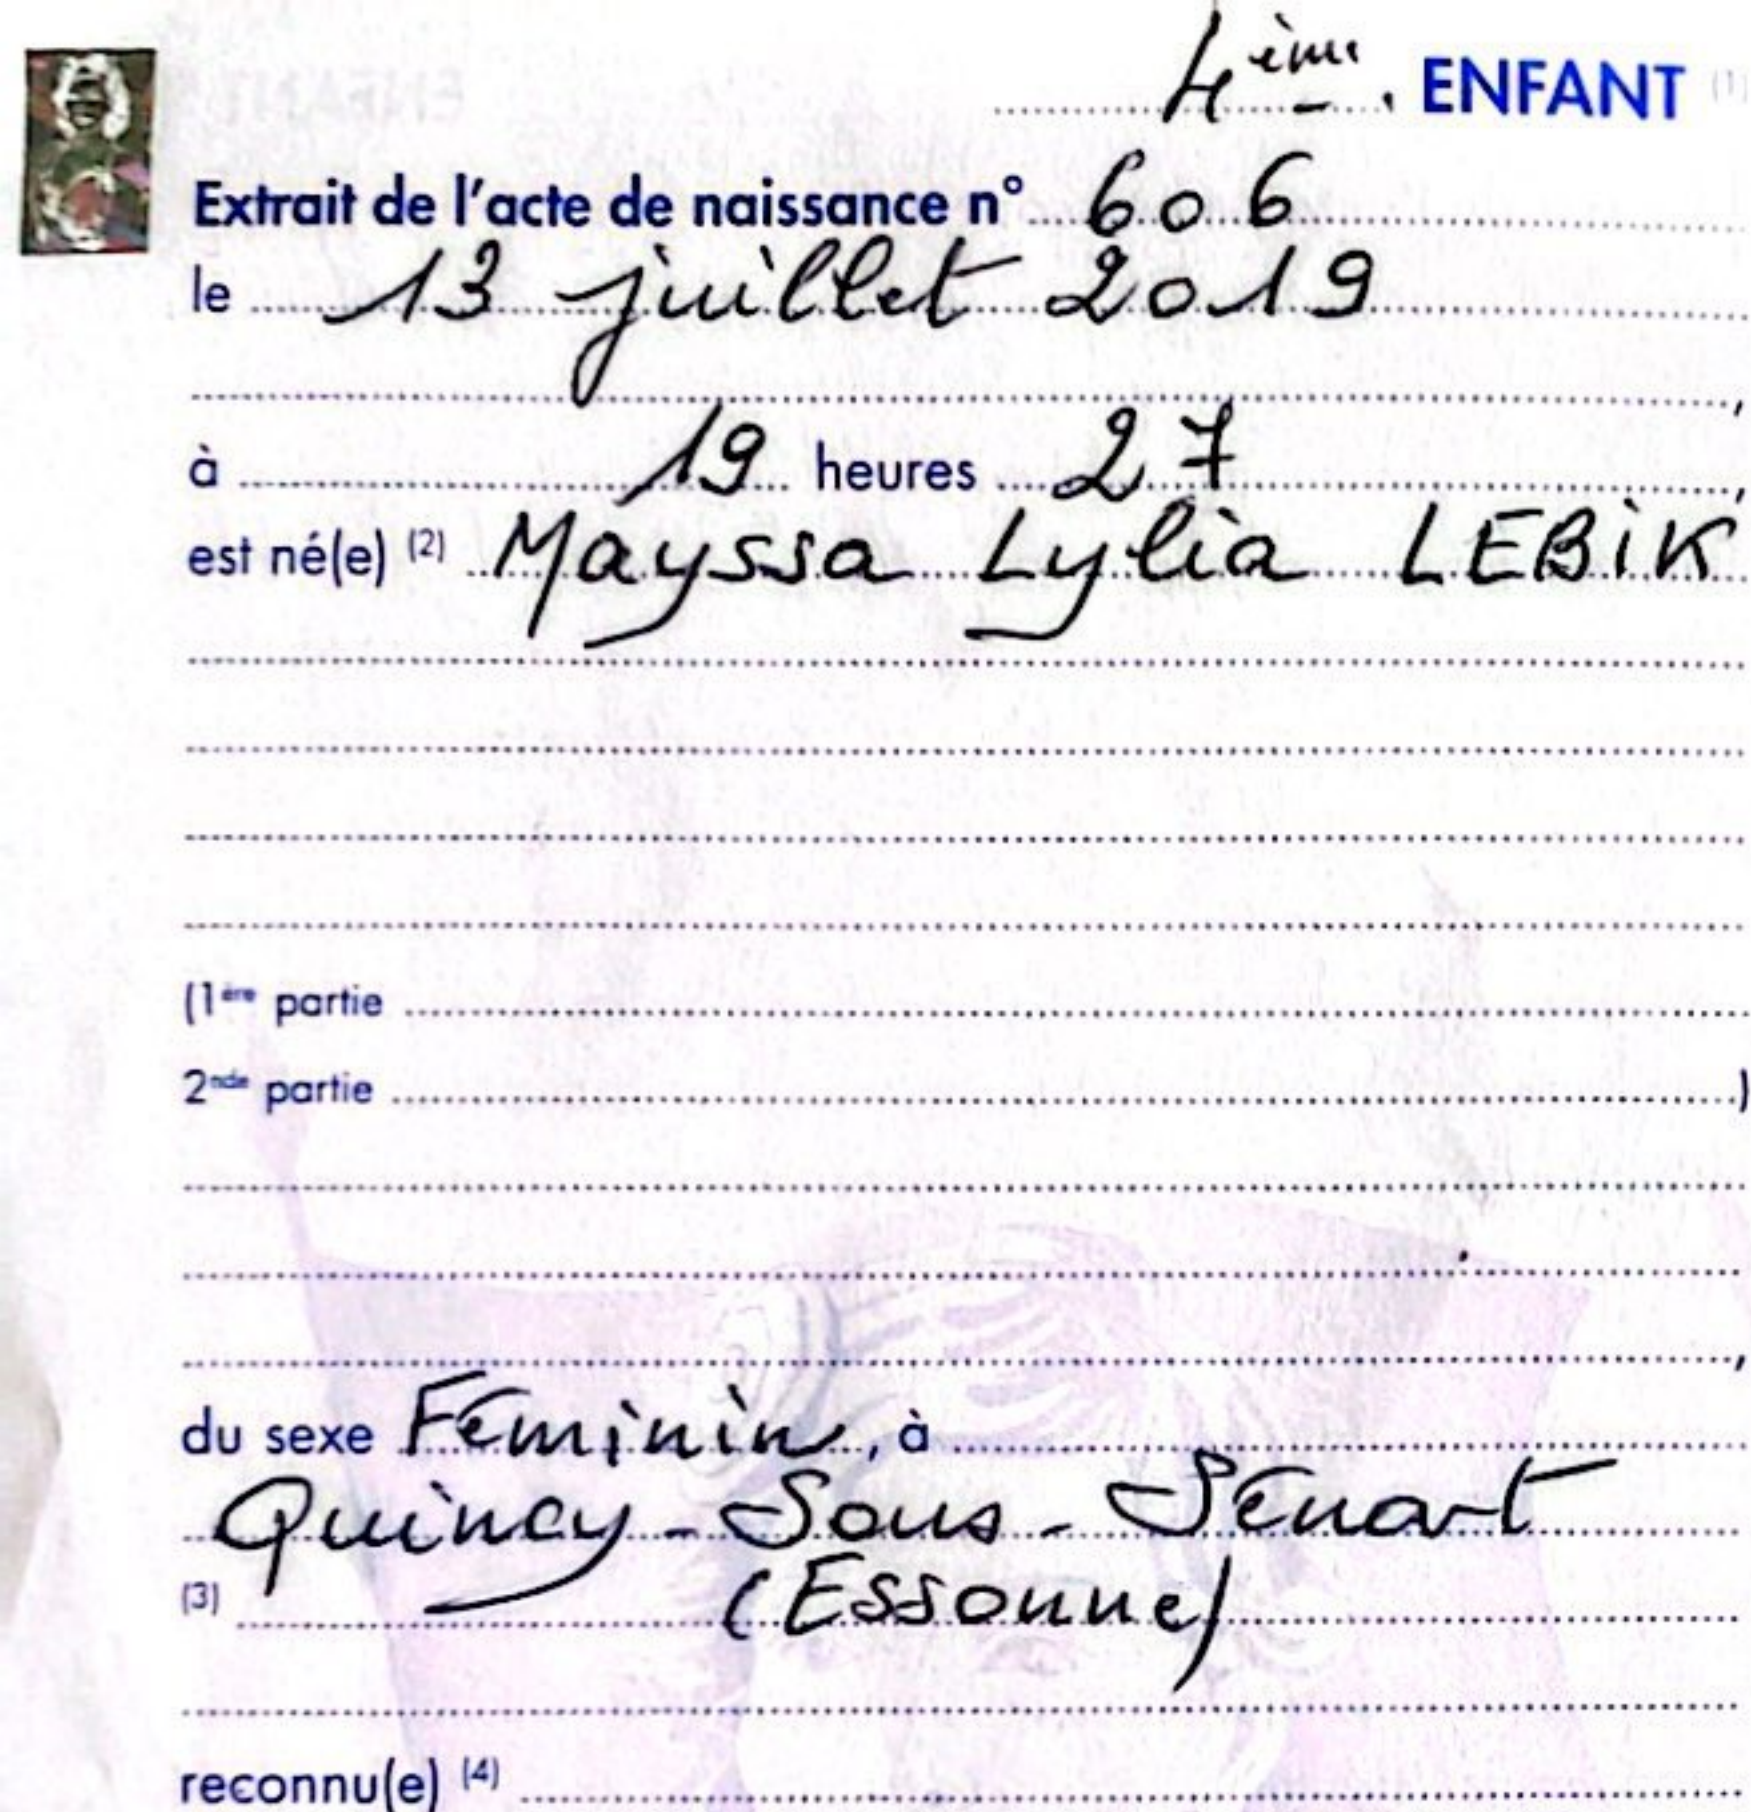 4ème. ENFANT (1)
Extrait de l'acte de naissance n° 606
le 13 juillet 2019
,
à 19 heures 27,
est né(e) (2) Mayssa Lylia LEBIK
(1ère partie
2nde partie )
,
du sexe Féminin, à
Quincy-Sous-Sénart
(3) (Essonne)
reconnu(e) (4)